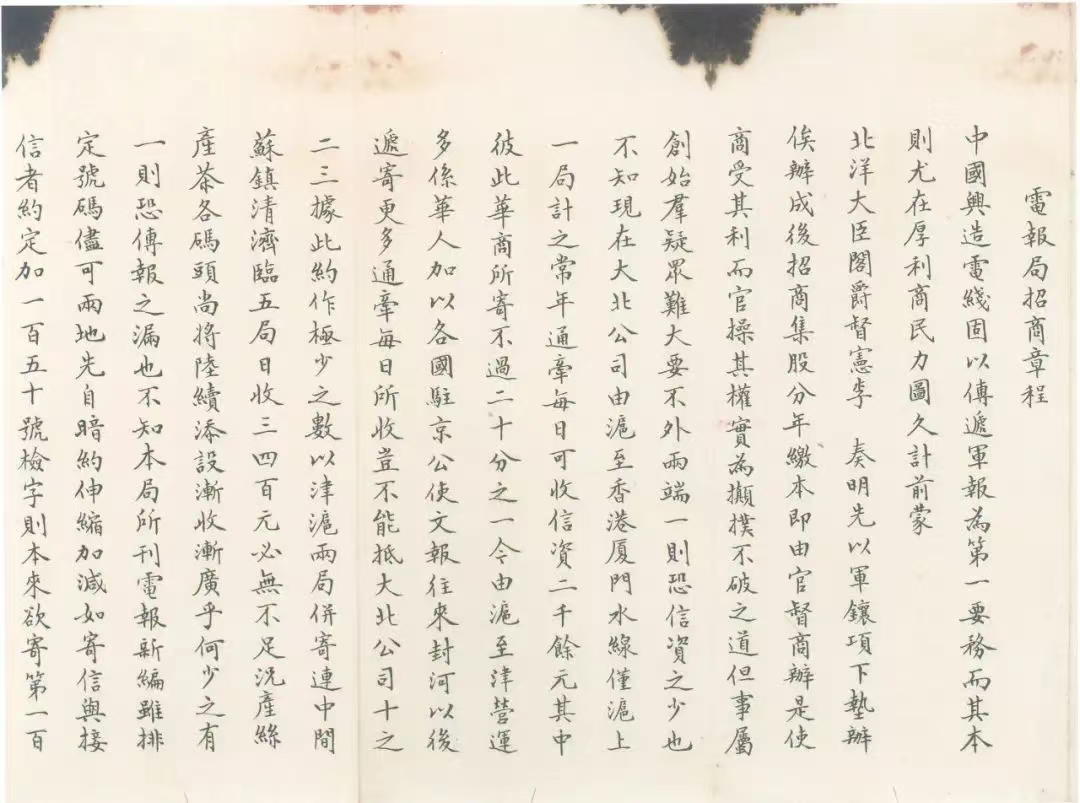 電報局招商章程
中國興造電綫固以傳遞軍報為第一要務而其本
則尤在厚利商民力圖久計前蒙
北洋大臣閣爵督憲李 奏明先以軍鑲項下墊辦
俟辦成後招商集股分年繳本即由官督商辦是使
商受其利而官操其權實為攧撲不破之道但事屬
創始羣疑眾難大要不外兩端一則恐信資之少也
不知現在大北公司由滬至香港厦門水線僅滬上
一局計之常年通牽每日可收信資二千餘元其中
彼此華商所寄不過二十分之一今由滬至津營運
多係華人加以各國駐京公使文報往來封河以後
遞寄更多通牽每日所收豈不能抵大北公司十之
二三據此約作極少之數以津滬兩局併寄連中間
蘇鎮清濟臨五局日收三四百元必無不足況產絲
產茶各碼頭尚將陸續添設漸收漸廣乎何少之有
一則恐傳報之漏也不知本局所刊電報新編雖排
定號碼儘可兩地先自暗約伸縮加減如寄信與接
信者約定加一百五十號檢字則本來欲寄第一百